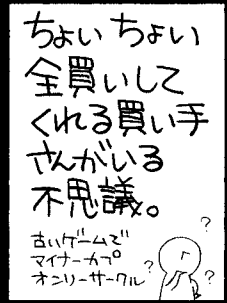 ちょいちょい
全買いして
くれる買い手
さんがいる
不思議。
古いゲームで
マイナーカプ
オンリーサークル
?
?
?